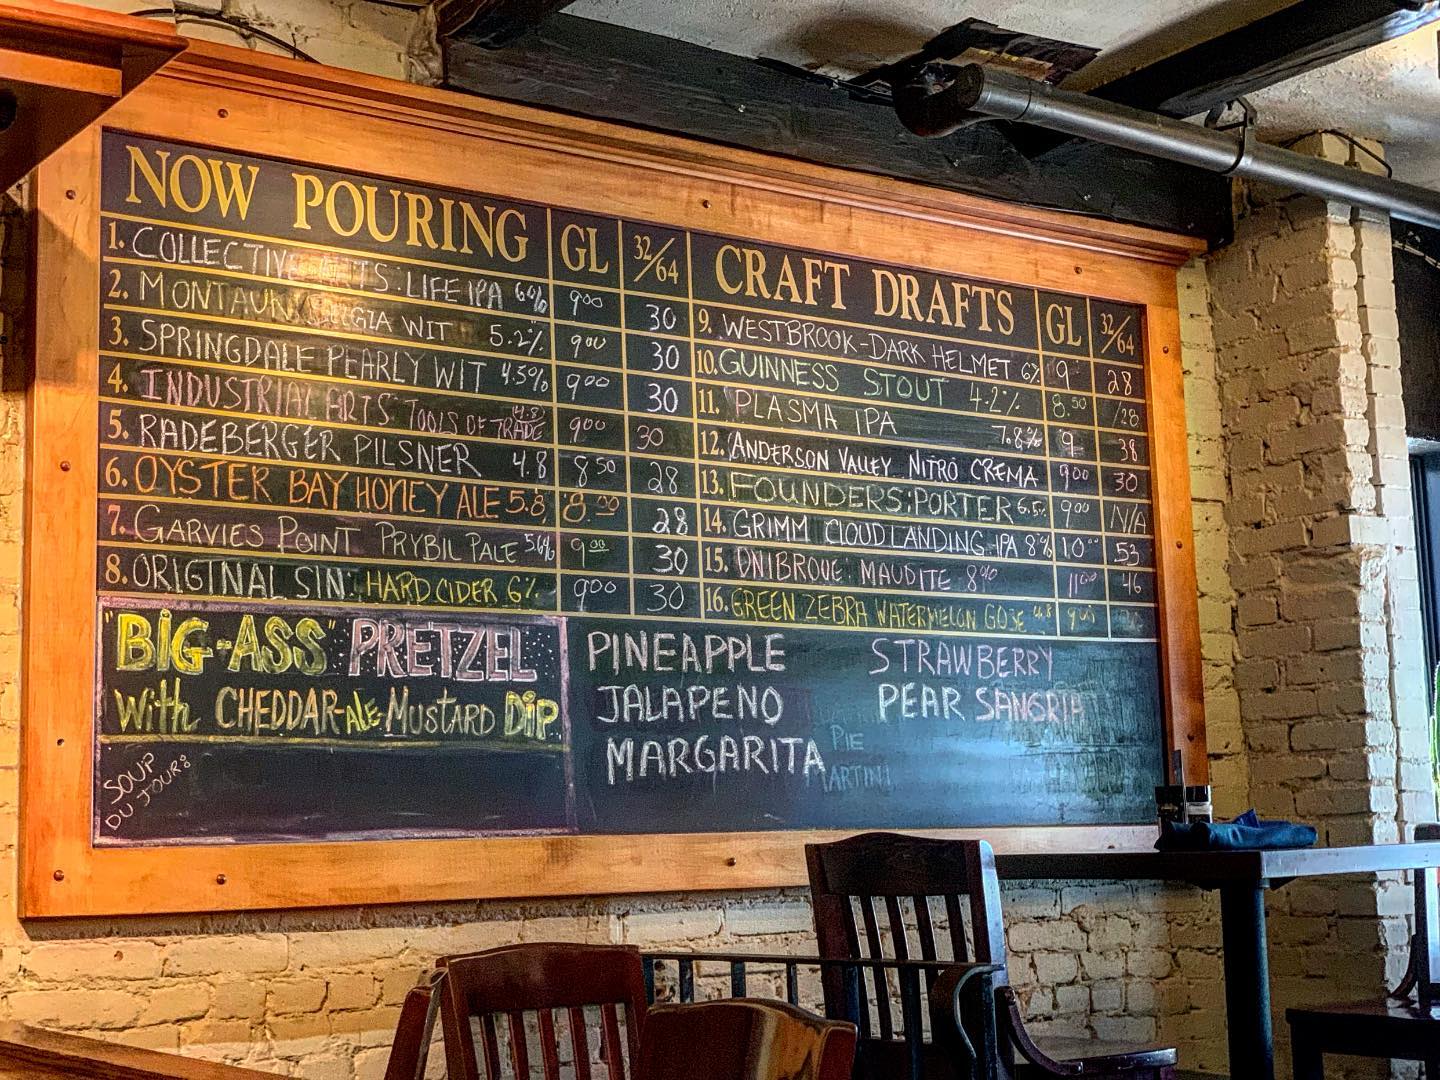 NOW POURING GL 32/64
1. COLLECTIVE ARTS: LIFE IPA 9.00 30
2. MONTAUK WIT 5.2% 9.00 30
3. SPRINGDALE PEARLY WIT 4.5% 9.00 30
4. INDUSTRIAL ARTS: TOOLS OF TRADE (4.8) 9.00 30
5. RADEBERGER PILSNER 4.8 8.50 28
6. OYSTER BAY HONEY ALE 5.8 8.00 28
7. GARVIES POINT PRYBIL PALE 5.6% 9.00 30
8. ORIGINAL SIN: HARD CIDER 6% 9.00 30
CRAFT DRAFTS GL 32/64
9. WESTBROOK-DARK HELMET 6% 9 28
10. GUINNESS STOUT 4.2% 8.50 /28
11. PLASMA IPA 7.8% 9 38
12. ANDERSON VALLEY NITRO CREMA 9.00 30
13. FOUNDERS: PORTER 6.5% 9.00 N/A
14. GRIMM CLOUDLANDING IPA 8% 10.00 53
15. UNIBROUE MAUDITE 8% 11.00 46
16. GREEN ZEBRA WATERMELON GOSE 4.8 9.00
"BIG-ASS" PRETZEL
With CHEDDAR-ALE-MUSTARD DIP
SOUP
DU JOUR:
PINEAPPLE
JALAPENO
MARGARITA
STRAWBERRY
PEAR SANGRIA
PIE
MARTINI